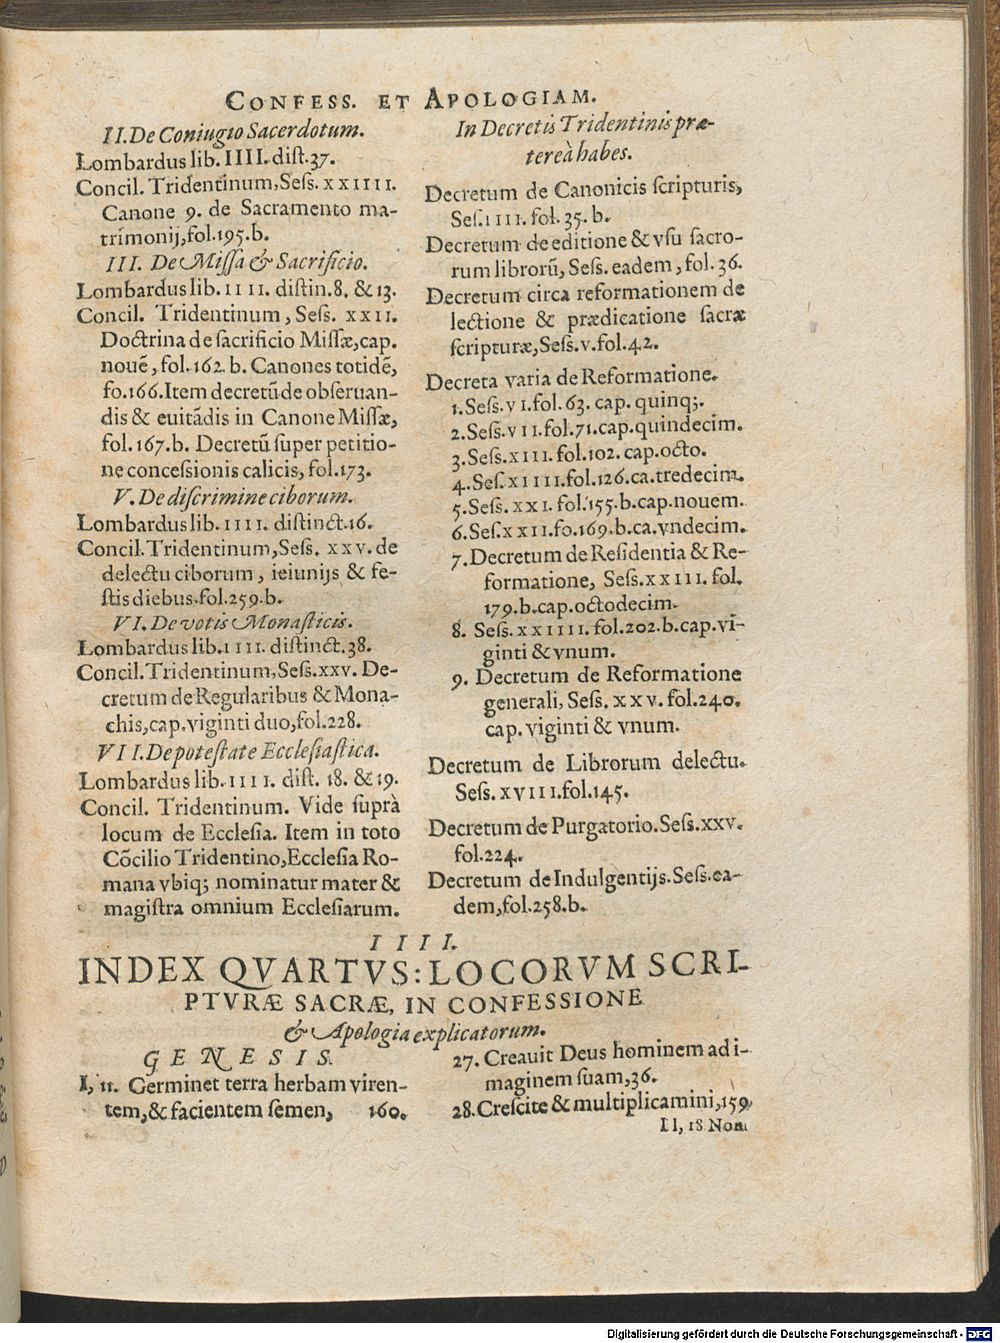 CONFESS. ET APOLOGIAM.
II. De Coniugio Sacerdotum.
Lombardus lib. IIII. dist. 37.
Concil. Tridentinum, Sess. XXIIII.
Canone 9. de Sacramento ma-
trimonij, fol. 195. b.
III. De Missa & Sacrificio.
Lombardus lib. IIII. distin. 8. & 13.
Concil. Tridentinum, Sess. XXII.
Doctrina de sacrificio Missæ, cap.
nouẽ, fol. 162. b. Canones totidẽ,
fo. 166. Item decretũ de obseruan-
dis & euitãdis in Canone Missæ,
fol. 167. b. Decretũ super petitio-
ne concessionis calicis, fol. 173.
V. De discrimine ciborum.
Lombardus lib. IIII. distinct. 16.
Concil. Tridentinum, Sess. XXV. de
delectu ciborum, ieiunijs & fe-
stis diebus. fol. 259. b.
VI. De votis Monasticis.
Lombardus lib. IIII. distinct. 38.
Concil. Tridentinum, Sess. xxv. De-
cretum de Regularibus & Mona-
chis, cap. viginti duo, fol. 228.
VII. De potestate Ecclesiastica.
Lombardus lib. IIII. dist. 18. & 19.
Concil. Tridentinum. Vide suprà
locum de Ecclesia. Item in toto
Cõcilio Tridentino, Ecclesia Ro-
mana vbiq; nominatur mater &
magistra omnium Ecclesiarum.
In Decretis Tridentinis præ-
tereà habes.
Decretum de Canonicis scripturis,
Ses. IIII. fol. 35. b.
Decretum de editione & vsu sacro-
rum librorũ, Sess. eadem, fol. 36.
Decretum circa reformationem de
lectione & prædicatione sacræ
scripturæ, Sess. v. fol. 42.
Decreta varia de Reformatione.
1. Sess. VI. fol. 63. cap. quinq;.
2. Sess. VII. fol. 71. cap. quindecim.
3. Sess. XIII. fol. 102. cap. octo.
4. Ses. XIIII. fol. 126. ca. tredecim.
5. Sess. XXI. fol. 155. b. cap. nouem.
6. Ses. XXII. fo. 169. b. ca. vndecim.
7. Decretum de Residentia & Re-
formatione, Sess. XXIII. fol.
179. b. cap. octodecim.
8. Sess. XXIIII. fol. 202. b. cap. vi-
ginti & vnum.
9. Decretum de Reformatione
generali, Sess. XXV. fol. 240.
cap. viginti & vnum.
Decretum de Librorum delectu.
Sess. XVIII. fol. 145.
Decretum de Purgatorio. Sess. XXV.
fol. 224.
Decretum de Indulgentijs. Sess. ea-
dem, fol. 258. b.
IIII.
INDEX QVARTVS: LOCORVM SCRI-
PTVRÆ SACRÆ, IN CONFESSIONE
& Apologia explicatorum.
GENESIS.
I, 11. Germinet terra herbam viren-
tem, & facientem semen, 160.
27. Creauit Deus hominem ad i-
maginem suam, 36.
28. Crescite & multiplicamini, 159.
II, 18 Non
Digitalisierung gefördert durch die Deutsche Forschungsgemeinschaft - DFG